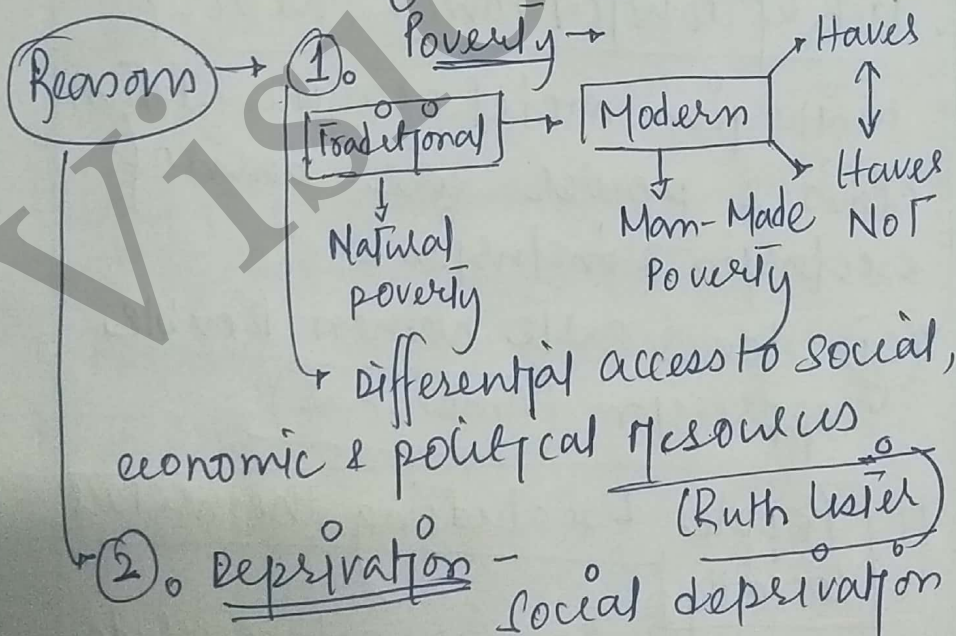 Reasons → ①. Poverty →
Traditional → Modern
Haves
↕
Haves NOT
Natural poverty
Man-Made Poverty
→ Differential access to social,
economic & political resources
(Ruth Lister)
②. Deprivation -
social deprivation